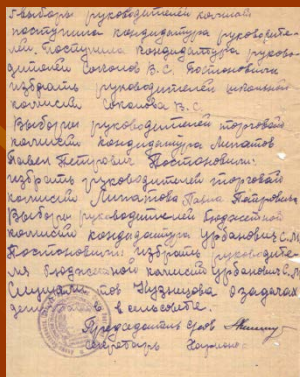 5 выборы руководителей комиссий
поступила кандидатура руководите-
лей. Поступила кандидатура руково-
дителей Соколов В.С. Постановили
избрать руководителей
комиссии Соколова В.С.
Выборы руководителей торговой
комиссии кандидатура Липатов
Павел Петрович Постановили:
избрать руководителей торговой
комиссии Липатова Павла Петровича
Выборы руководителей бюджетной
комиссии кандидатура Урбанович С.М.
Постановили: избрать руководите-
ля бюджетной комиссии Урбанович С.М.
Слушали тов Кузнецова о задачах
в сельсовете.
Председатель
Секретарь